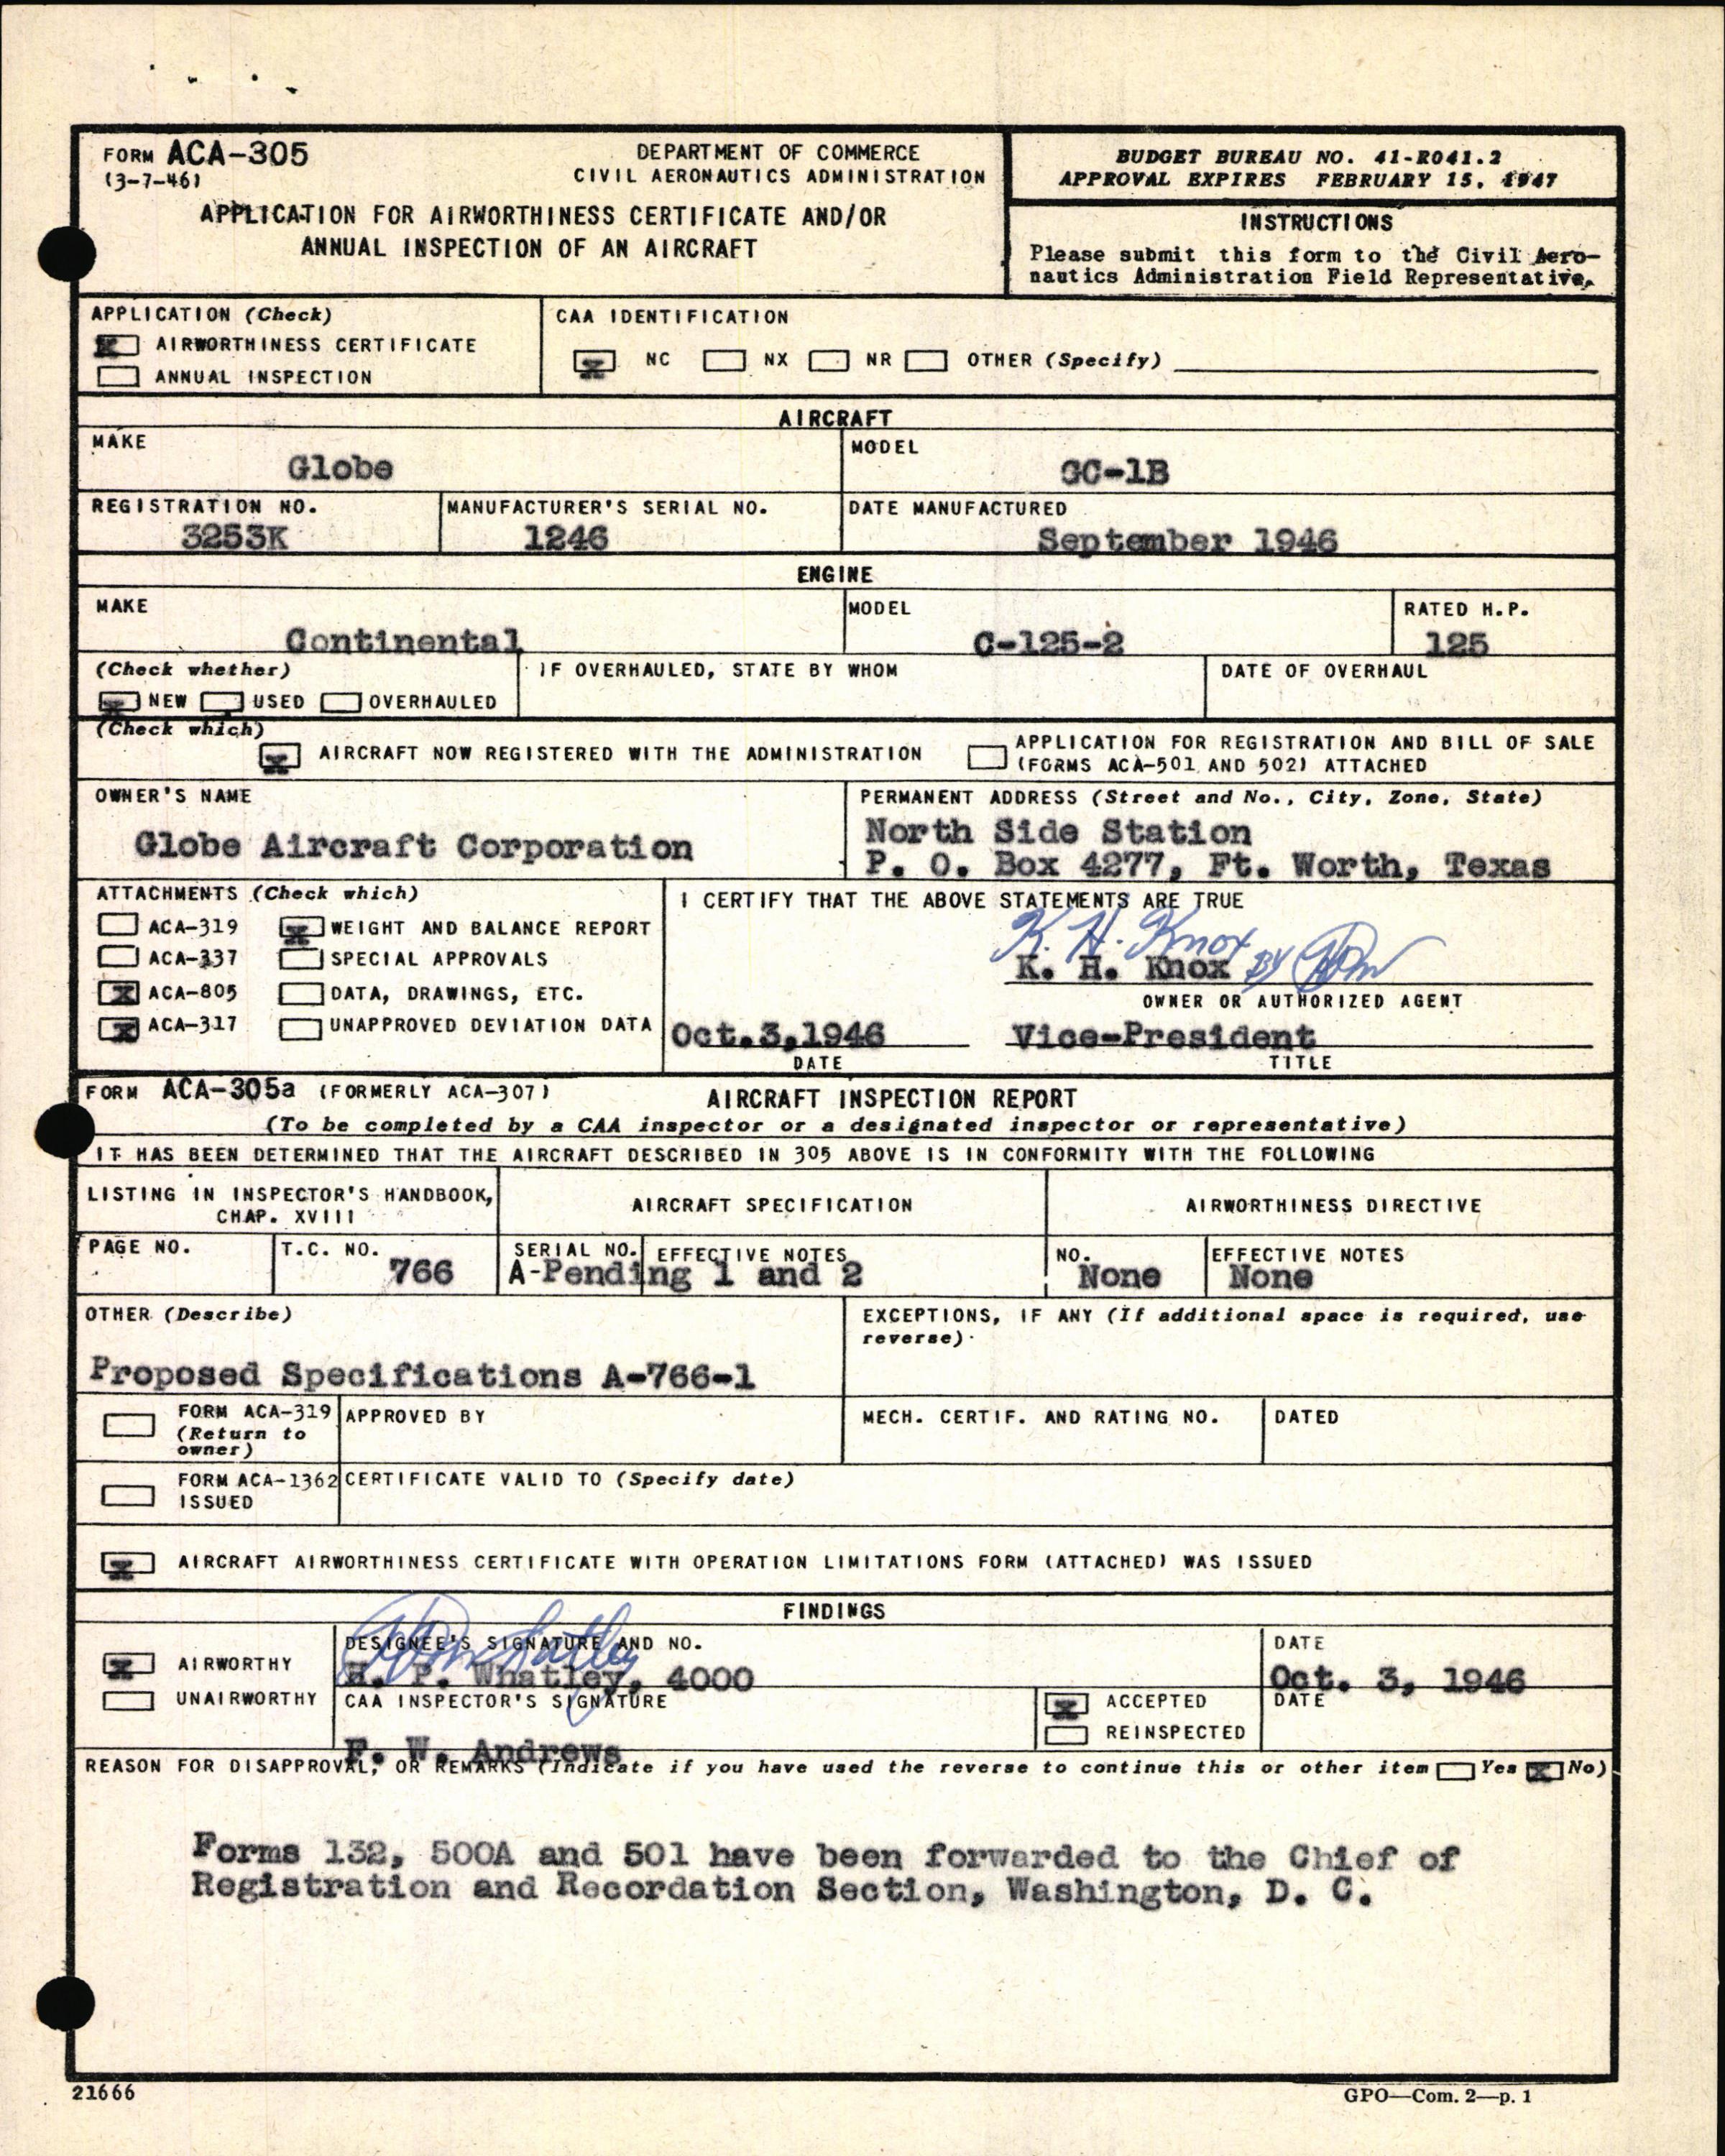 FORM ACA-305
(3-7-46)
DEPARTMENT OF COMMERCE
CIVIL AERONAUTICS ADMINISTRATION
APPLICATION FOR AIRWORTHINESS CERTIFICATE AND/OR
ANNUAL INSPECTION OF AN AIRCRAFT
BUDGET BUREAU NO. 41-R041.2
APPROVAL EXPIRES FEBRUARY 15, 1947
INSTRUCTIONS
Please submit this form to the Civil Aero-
nautics Administration Field Representative.
APPLICATION (Check)
X AIRWORTHINESS CERTIFICATE
ANNUAL INSPECTION
CAA IDENTIFICATION
X NC NX NR OTHER (Specify)
AIRCRAFT
MAKE
Globe
MODEL
GC-1B
REGISTRATION NO.
3253K
MANUFACTURER'S SERIAL NO.
1246
DATE MANUFACTURED
September 1946
ENGINE
MAKE
Continental
MODEL
C-125-2
RATED H.P.
125
(Check whether)
X NEW USED OVERHAULED
IF OVERHAULED, STATE BY WHOM
DATE OF OVERHAUL
(Check which)
X AIRCRAFT NOW REGISTERED WITH THE ADMINISTRATION
APPLICATION FOR REGISTRATION AND BILL OF SALE
(FORMS ACA-501 AND 502) ATTACHED
OWNER'S NAME
Globe Aircraft Corporation
PERMANENT ADDRESS (Street and No., City, Zone, State)
North Side Station
P. O. Box 4277, Ft. Worth, Texas
ATTACHMENTS (Check which)
ACA-319 X WEIGHT AND BALANCE REPORT
ACA-337 SPECIAL APPROVALS
X ACA-805 DATA, DRAWINGS, ETC.
X ACA-317 UNAPPROVED DEVIATION DATA
I CERTIFY THAT THE ABOVE STATEMENTS ARE TRUE
K. H. Knox
K. H. Knox BY
OWNER OR AUTHORIZED AGENT
Oct.3,1946 Vice-President
DATE TITLE
FORM ACA-305a (FORMERLY ACA-307) AIRCRAFT INSPECTION REPORT
(To be completed by a CAA inspector or a designated inspector or representative)
IT HAS BEEN DETERMINED THAT THE AIRCRAFT DESCRIBED IN 305 ABOVE IS IN CONFORMITY WITH THE FOLLOWING
LISTING IN INSPECTOR'S HANDBOOK,
CHAP. XVIII
AIRCRAFT SPECIFICATION
AIRWORTHINESS DIRECTIVE
PAGE NO.
T.C. NO.
766
SERIAL NO. EFFECTIVE NOTES
A-Pending 1 and 2
NO.
None
EFFECTIVE NOTES
None
OTHER (Describe)
Proposed Specifications A-766-1
EXCEPTIONS, IF ANY (If additional space is required, use
reverse)
FORM ACA-319
(Return to
owner)
APPROVED BY
MECH. CERTIF. AND RATING NO.
DATED
FORM ACA-1362
ISSUED
CERTIFICATE VALID TO (Specify date)
X AIRCRAFT AIRWORTHINESS CERTIFICATE WITH OPERATION LIMITATIONS FORM (ATTACHED) WAS ISSUED
FINDINGS
X AIRWORTHY
UNAIRWORTHY
DESIGNEE'S SIGNATURE AND NO.
H. P. Whatley, 4000
DATE
Oct. 3, 1946
CAA INSPECTOR'S SIGNATURE
F. W. Andrews
X ACCEPTED
REINSPECTED
DATE
REASON FOR DISAPPROVAL, OR REMARKS (Indicate if you have used the reverse to continue this or other item Yes X No)
Forms 132, 500A and 501 have been forwarded to the Chief of
Registration and Recordation Section, Washington, D. C.
21666
GPO—Com. 2—p. 1